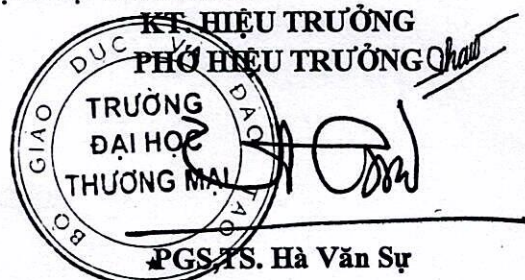 KT. HIỆU TRƯỞNG
PHÓ HIỆU TRƯỞNG
BỘ GIÁO DỤC VÀ ĐÀO TẠO
TRƯỜNG
ĐẠI HỌC
THƯƠNG MẠI
PGS,TS. Hà Văn Sự